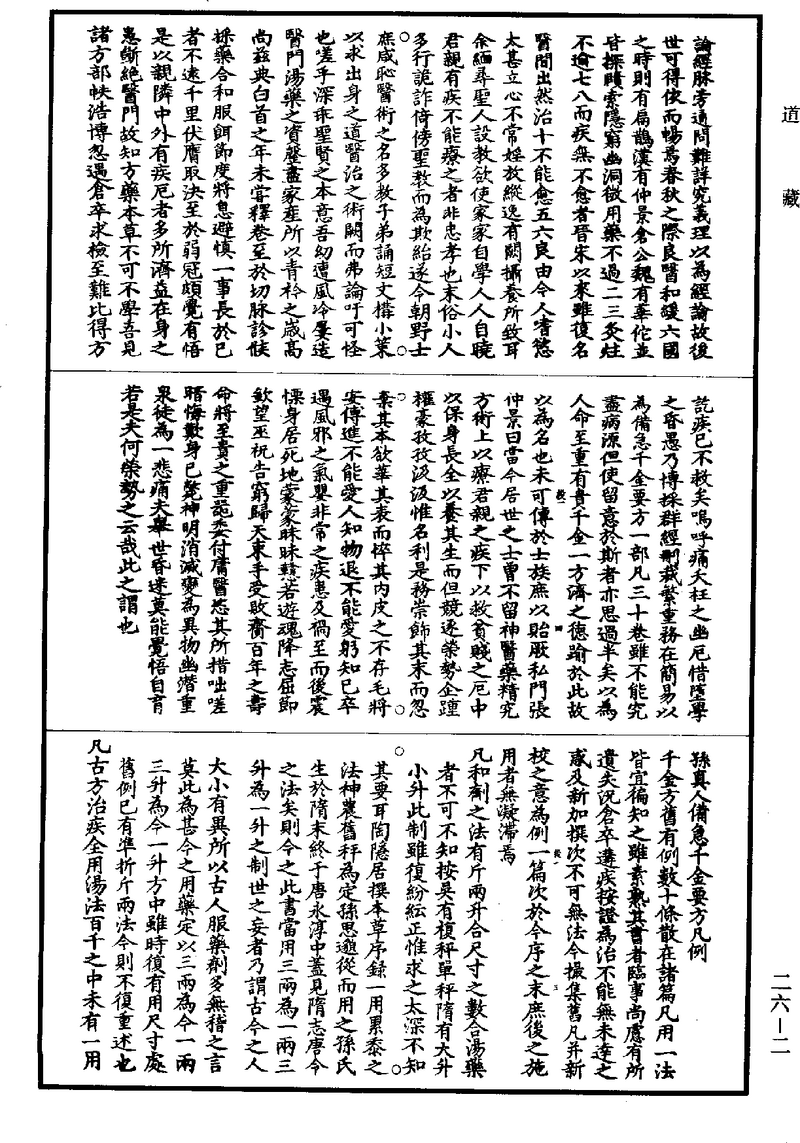 道藏
論經脉旁通問難詳究義理以為經論故後
世可得依而暢焉春秋之際良醫和緩六國
之時則有扁鵲漢有仲景倉公魏有華佗並
皆探賾索隱窮幽洞微用藥不過二三灸炷
不逾七八而疾無不愈者晉宋以來雖復名
醫間出然治十不能愈五六良由今人嗜慾
太甚立心不常婬放縱逸有闕攝養所致耳
余緬尋聖人設教欲使家家自學人人自曉
君親有疾不能療之者非忠孝也末俗小人
多行詭詐倚傍聖教而為欺紿遂令朝野士
庶咸恥醫術之名多教子弟誦短文搆小策
以求出身之道醫治之術闕而弗論吁可怪
也嗟乎深乖聖賢之本意吾幼遭風冷屢造
醫門湯藥之資罄盡家產所以青衿之歲高
尚茲典白首之年未嘗釋卷至於切脉診候
採藥合和服餌節度將息避慎一事長於已
者不遠千里伏膺取決至於弱冠頗覺有悟
是以親隣中外有疾厄者多所濟益在身之
患斷絕醫門故知方藥本草不可不學吾見
諸方部帙浩博忽遇倉卒求檢至難比得方
訖疾已不救矣嗚呼痛夭枉之幽厄惜墮學
之昏愚乃博採群經刪裁繁重務在簡易以
為備急千金要方一部凡三十卷雖不能究
盡病源但使留意於斯者亦思過半矣以為
人命至重有貴千金一方濟之德踰於此故
以為名也未可傳於士族庶以貽厥私門張
仲景曰當今居世之士曾不留神醫藥精究
方術上以療君親之疾下以救貧賤之厄中
以保身長全以養其生而但競逐榮勢企踵
權豪孜孜汲汲惟名利是務崇飾其末而忽
棄其本欲華其表而悴其內皮之不存毛將
安傅進不能愛人知物退不能愛躬知己卒
遇風邪之氣嬰非常之疾患及禍至而後震
慄身居死地蒙蒙昧昧戇若遊魂降志屈節
欽望巫祝告窮歸天束手受敗齎百年之壽
命將至貴之重器委付庸醫恣其所措咄嗟
暗悔歎身已斃神明消滅變為異物幽潛重
泉徒為一悲痛夫舉世昏迷莫能覺悟自育
若是夫何榮勢之云哉此之謂也
孫真人備急千金要方凡例
千金方舊有例數十條散在諸篇凡用一法
皆宜徧知之雖素熟其書者臨事尚慮有所
遺失況倉卒遘疾按證為治不能無未達之
惑及新加撰次不可無法今撮集舊凡并新
校之意為例一篇次於今序之末庶後之施
用者無凝滯焉
凡和劑之法有斤兩升合尺寸之數合湯藥
者不可不知按吳有複秤單秤隋有大升
小升此制雖復紛紜正惟求之太深不知
其要耳陶隱居撰本草序錄一用累黍之
法神農舊秤為定孫思邈從而用之孫氏
生於隋末終于唐永淳中蓋見隋志唐令
之法矣則今之此書當用三兩為一兩三
升為一升之制世之妄者乃謂古今之人
大小有異所以古人服藥劑多無稽之言
莫此為甚今之用藥定以三兩為今一兩
三升為今一升方中雖時復有用尺寸處
舊例已有準折斤兩法今則不復重述也
凡古方治疾全用湯法百千之中未有一用
二六—二